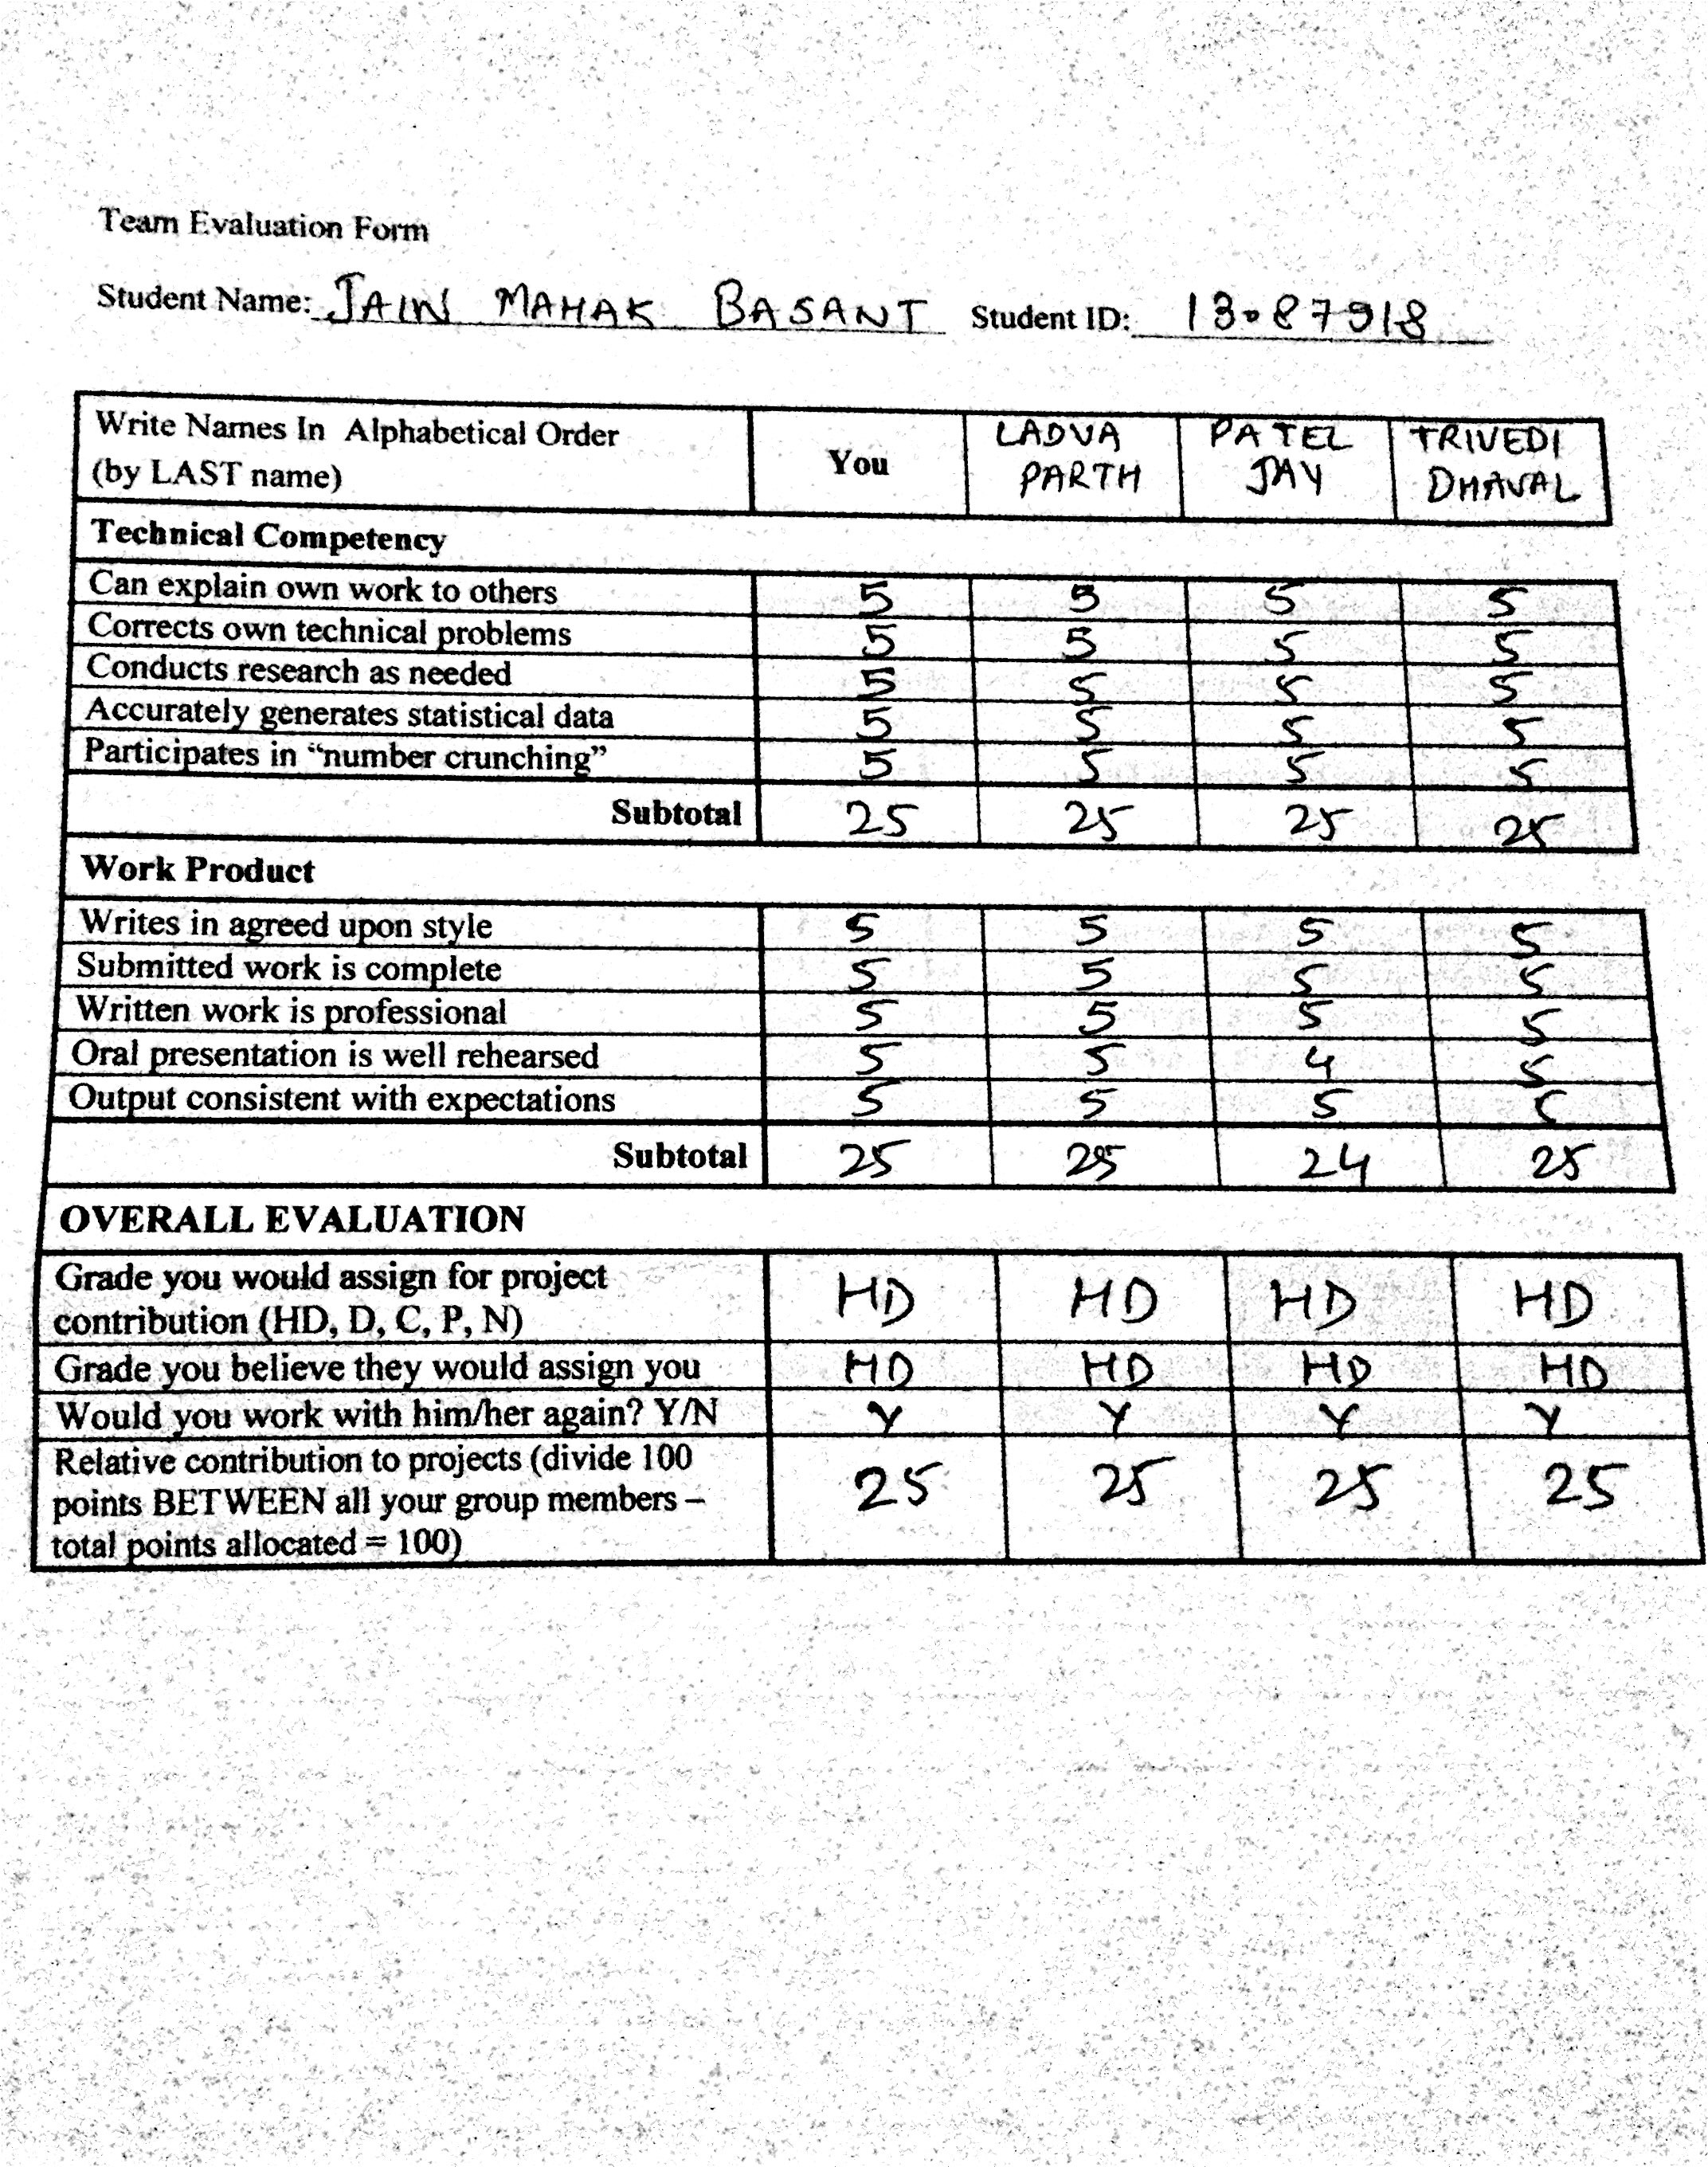 Team Evaluation Form
Student Name: JAIN MAHAK BASANT Student ID: 13087918
Write Names In Alphabetical Order
(by LAST name)
You
LADVA
PARTH
PATEL
JAY
TRIVEDI
DHAVAL
Technical Competency
Can explain own work to others 5 5 5 5
Corrects own technical problems 5 5 5 5
Conducts research as needed 5 5 5 5
Accurately generates statistical data 5 5 5 5
Participates in “number crunching” 5 5 5 5
Subtotal 25 25 25 25
Work Product
Writes in agreed upon style 5 5 5 5
Submitted work is complete 5 5 5 5
Written work is professional 5 5 5 5
Oral presentation is well rehearsed 5 5 4 5
Output consistent with expectations 5 5 5 5
Subtotal 25 25 24 25
OVERALL EVALUATION
Grade you would assign for project
contribution (HD, D, C, P, N) HD HD HD HD
Grade you believe they would assign you HD HD HD HD
Would you work with him/her again? Y/N Y Y Y Y
Relative contribution to projects (divide 100
points BETWEEN all your group members – 25 25 25 25
total points allocated = 100)